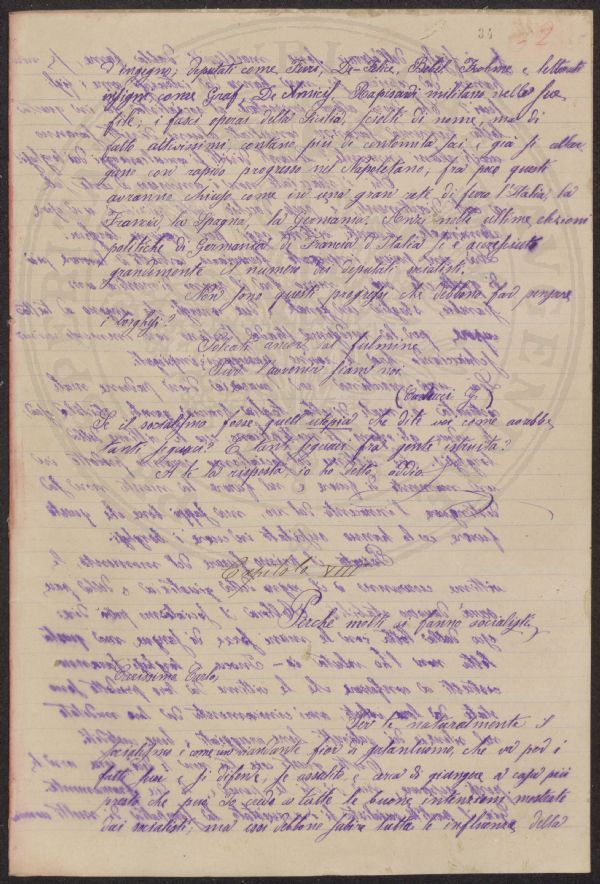 34 2
d'ingegno; deputati come Ferri, De-Felice, Bebel, e letterati
insigni come Graf, De Amicis, Rapisardi militano nelle sue
file; i fasci operai della Sicilia, sciolti di nome, ma di
fatto attivissimi, contano più di centomila soci e già si allar
gano con rapido progresso nel Napoletano, fra poco questi
avranno chiuso come in una gran rete di ferro l'Italia, la
Francia, la Spagna, la Germania. Anzi nelle ultime elezioni
politiche di Germania, di Francia, d'Italia si è accresciuto
grandemente il numero dei deputati socialisti.
Non sono questi progressi che debbono far pensare
i borghesi?
ancor al fulmine
l'avvenir siam noi.
(Carducci G.)
Se il socialismo fosse quell'utopia che dite voi come avrebbe
tanti seguaci? E tanti seguaci fra gente istruita?
A te la risposta io ho detto, addio.
Capitolo VIII
Perchè molti si fanno socialisti
Carissimo Carlo,
naturalmente il
socialismo è come un viandante fior di galantuomo, che va pei
fatti suoi e si difende se assalito e cerca di giungere a capo più
presto che può. Io credo a tutte le buone intenzioni mostrate
dai socialisti; ma essi debbono subire tutta la influenza della